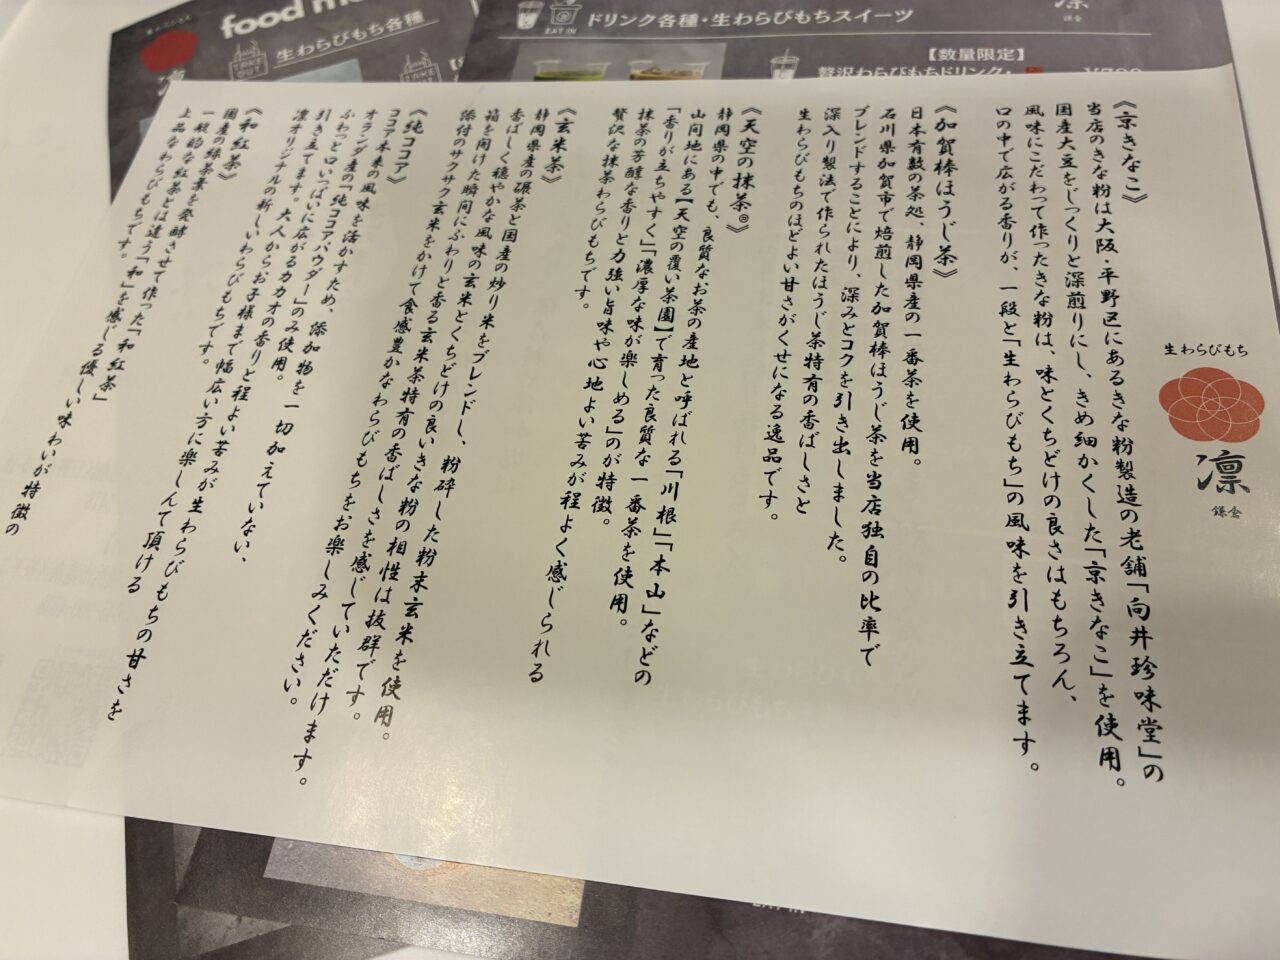 food m
生わらびもち各種
TAKE OUT
EAT IN
ドリンク各種・生わらびもちスイーツ
凛
鎌倉
【数量限定】
贅沢わらびもちドリンク
生わらびもち
凛
鎌倉
《京きなこ》
当店のきな粉は大阪・平野区にあるきな粉製造の老舗「向井珍味堂」の
国産大豆をじっくりと深煎りにし、きめ細かくした「京きなこ」を使用。
風味にこだわって作ったきな粉は、味とくちどけの良さはもちろん、
口の中で広がる香りが、一段と「生わらびもち」の風味を引き立てます。
《加賀棒ほうじ茶》
日本有数の茶処、静岡県産の一番茶を使用。
石川県加賀市で焙煎した加賀棒ほうじ茶を当店独自の比率で
ブレンドすることにより、深みとコクを引き出しました。
深入り製法で作られたほうじ茶特有の香ばしさと
生わらびもちのほどよい甘さがくせになる逸品です。
《天空の抹茶®》
静岡県の中でも、良質なお茶の産地と呼ばれる「川根」「本山」などの
山間地にある【天空の覆い茶園】で育った良質な一番茶を使用。
「香りが立ちやすく」「濃厚な味が楽しめる」のが特徴。
抹茶の芳醇な香りと力強い旨味や心地よい苦みが程よく感じられる
贅沢な抹茶わらびもちです。
《玄米茶》
静岡県産の碾茶と国産の炒り米をブレンドし、粉砕した粉末玄米を使用。
香ばしく穏やかな風味の玄米とくちどけの良いきな粉の相性は抜群です。
箱を開けた瞬間にふわりと香る玄米茶特有の香ばしさを感じていただけます。
添付のサクサク玄米をかけて食感豊かなわらびもちをお楽しみください。
《純ココア》
ココア本来の風味を活かすため、添加物を一切加えていない、
オランダ産の「純ココアパウダー」のみ使用。
ふわっと口いっぱいに広がるカカオの香りと程よい苦みが生わらびもちの甘さを
引き立てます。大人からお子様まで幅広い方に楽しんて頂ける
凛オリジナルの新しいわらびもちです。
《和紅茶》
国産の緑茶葉を発酵させて作った「和紅茶」
一般的な紅茶とは違う「和」を感じる優しい味わいが特徴の
上品なわらびもちです。